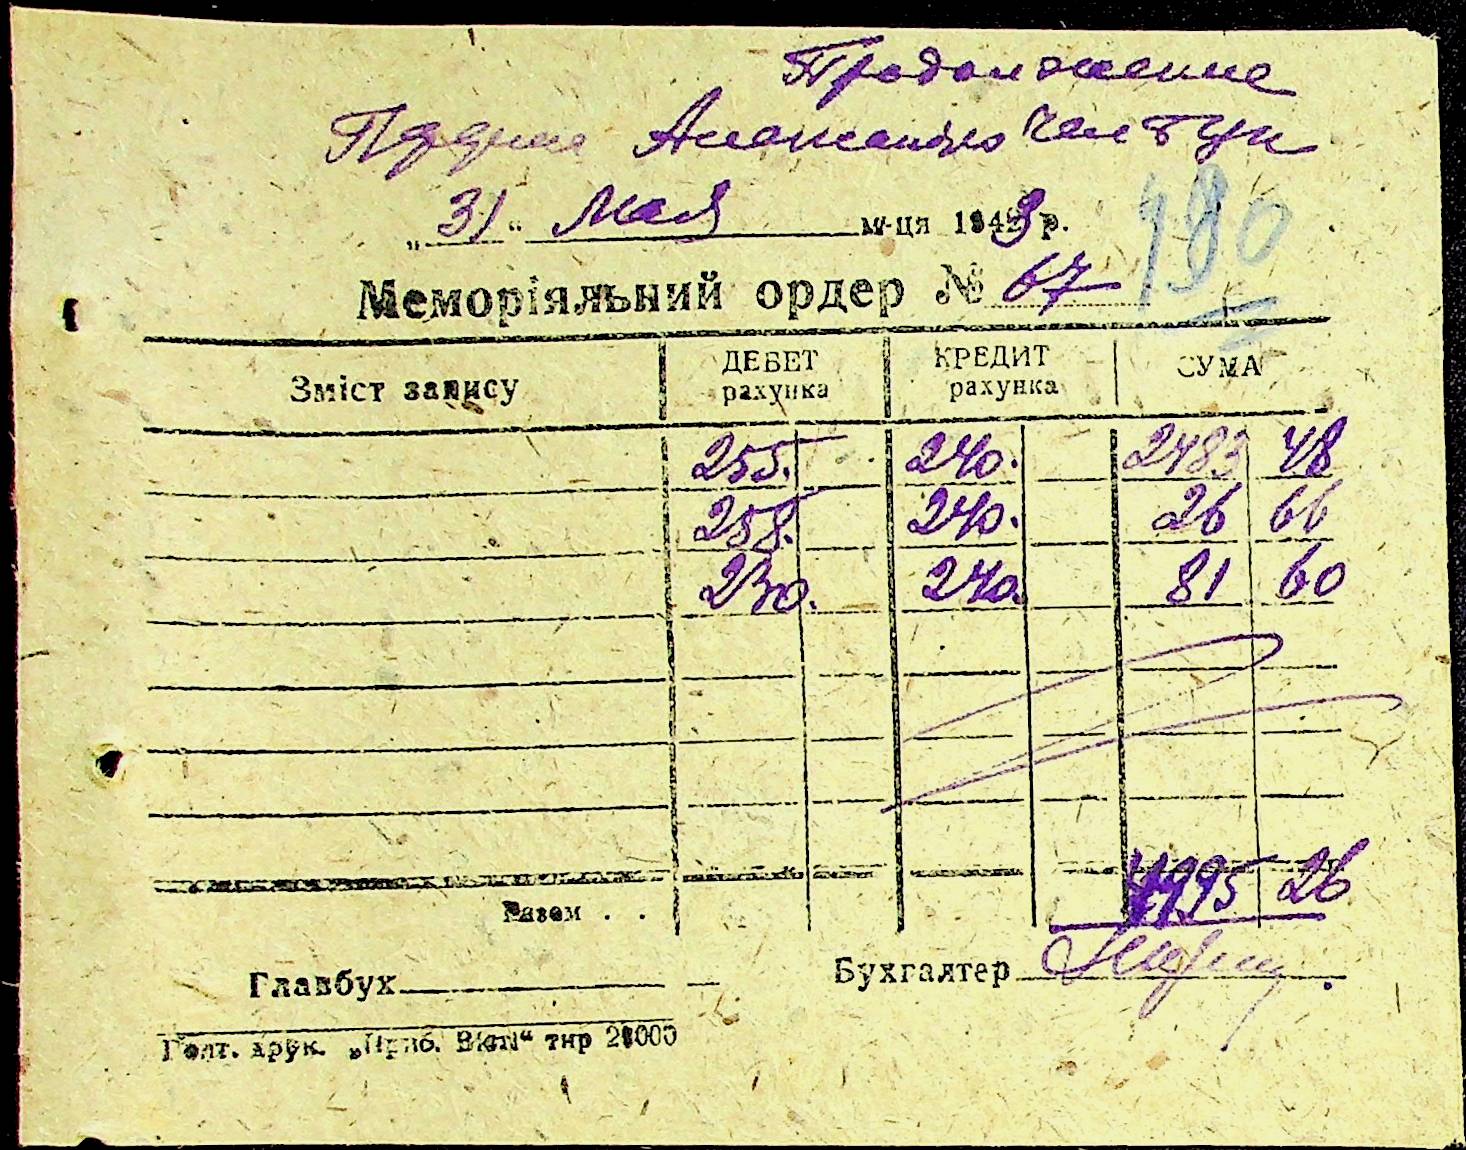 Продолжение
„31“ Мая м-ця 1943 р.
190
Меморіяльний ордер № 67
Зміст запису ДЕБЕТ рахунка КРЕДИТ рахунка СУМА
255. 240. 2483 48
258. 240. 26 66
230. 240. 81 60
4995 26
Разом . .
Главбух Бухгалтер
Голт. друк. „Приб. Вісті“ тир 20000